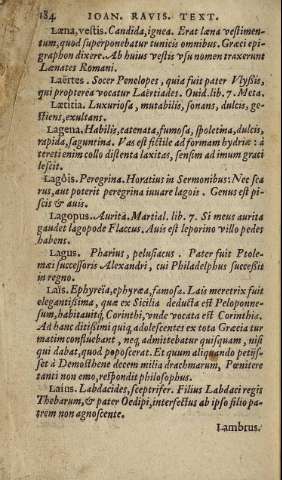 184. IOAN. RAVIS. TEXT.
Læna, vestis. Candida, ignea. Erat læna vestimen-
tum, quod superponebatur tunicis omnibus. Græci epi-
graphon dixere. Ab huius vestis vsu nomen traxerunt
Lænates Romani.
Laërtes. Socer Penelopes, quia fuit pater Vlyssis,
qui propterea vocatur Laërtiades. Ouid. lib. 7. Meta.
Lætitia. Luxuriosa, mutabilis, sonans, dulcis, ge-
stiens, exultans.
Lagena. Habilis, catenata, fumosa, spoletina, dulcis,
rapida, saguntina. Vas est fictile ad formam hydriæ: à
tereti enim collo distenta laxitas, sensim ad imum grati
lescit.
Lagoïs. Peregrina. Horatius in Sermonibus: Nec sca
rus, aut poterit peregrina iuuare lagois. Genus est pi-
scis & auis.
Lagopus. Aurita. Martial. lib. 7. Si meus aurita
gaudet lagopode Flaccus. Auis est leporino villo pedes
habens.
Lagus. Pharius, pelusiacus. Pater fuit Ptole-
mæi successoris Alexandri, cui Philadelphus successit
in regno.
Laïs. Ephyreïa, ephyræa, famosa. Lais meretrix fuit
elegantissima, quæ ex Sicilia deducta est Peloponne-
sum, habitauitq; Corinthi, vnde vocata est Corinthia.
Ad hanc ditissimi quiq; adolescentes ex tota Græcia tur
matim confluebant, neq; admittebatur quisquam, nisi
qui dabat, quod poposcerat. Et quum aliquando petijs-
set à Demosthene decem milia drachmarum, Pœnitere
tanti non emo, respondit philosophus.
Laius. Labdacides, sceptrifer. Filius Labdaci regis
Thebarum, & pater Oedipi, interfectus ab ipso filio pa-
trem non agnoscente.
Lambrus.